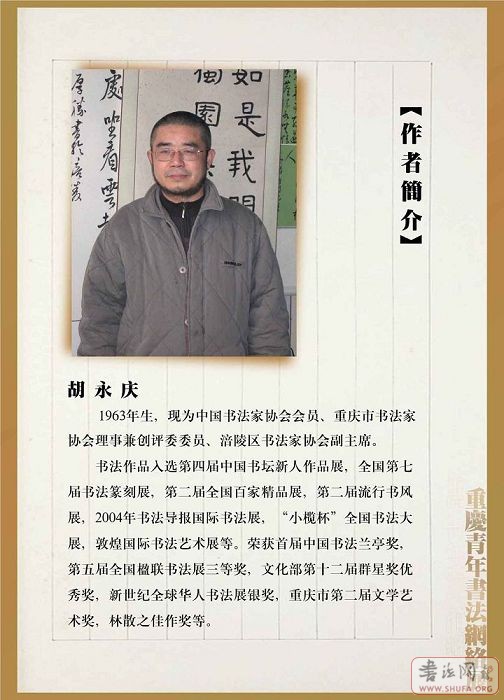 如是我聞
處坐看雲起
【作者簡介】
胡永庆
1963年生，现为中国书法家协会会员、重庆市书法家
协会理事兼创评委委员、涪陵区书法家协会副主席。
书法作品入选第四届中国书坛新人作品展，全国第七
届书法篆刻展，第二届全国百家精品展，第二届流行书风
展，2004年书法导报国际书法展，“小榄杯”全国书法大
展，敦煌国际书法艺术展等。荣获首届中国书法兰亭奖，
第五届全国楹联书法展三等奖，文化部第十二届群星奖优
秀奖，新世纪全球华人书法展银奖，重庆市第二届文学艺
术奖，林散之佳作奖等。
重慶青年書法網絡
书法网
WWW.SHUFA.ORG